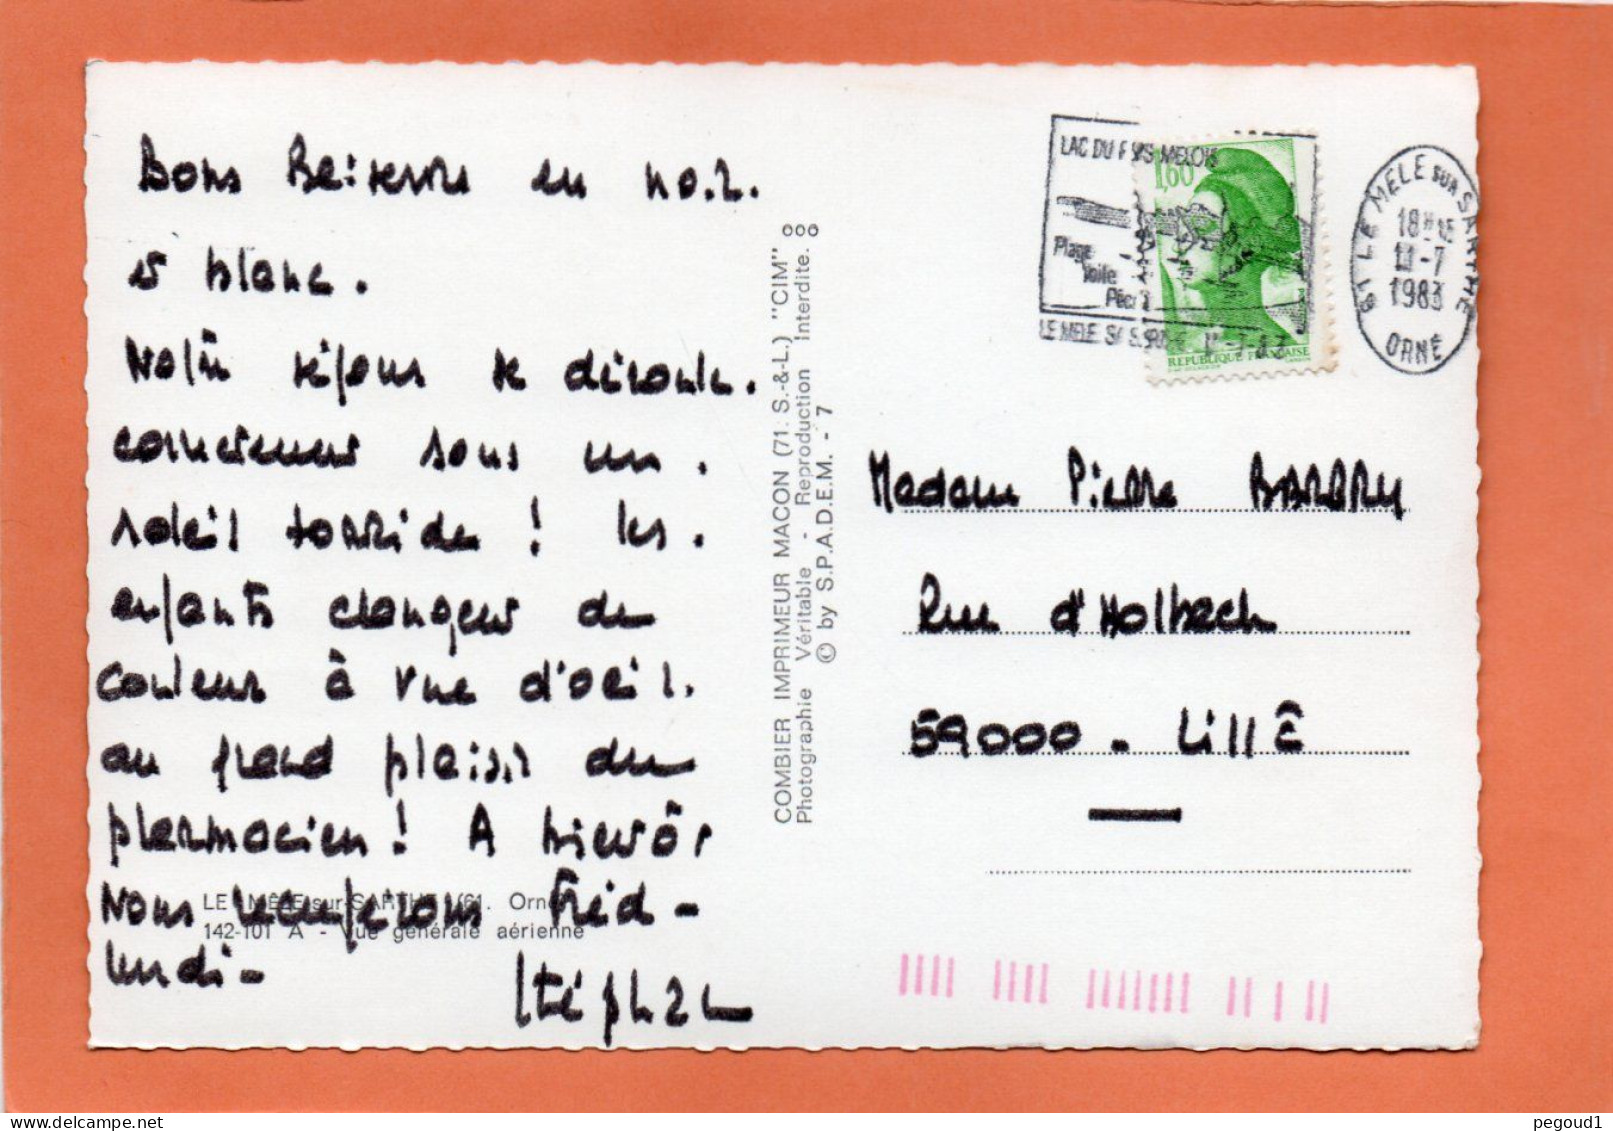 Bons Baisers en noir
et blanc.
Notre séjour se déroule
correctement sous un
soleil torride ! les
enfants changent de
couleur à vue d'oeil.
au grand plaisir du
pharmacien ! A bientôt
Nous récupérons Fréd -
lundi -
Stéphan
LE MÊLE-sur-SARTHE (61. Orne)
142-101 A - Vue générale aérienne
COMBIER IMPRIMEUR MACON (71. S.-&-L.) "CIM"
Photographie Véritable - Reproduction Interdite.
© by S.P.A.D.E.M. - 7
LAC DU PAYS MELOIS
Plage
Voile
Pêche
LE MELE S/ SARTHE
1,60
REPUBLIQUE FRANÇAISE
61 LE MELE SUR SARTHE
18H
11-7
1983
ORNE
Madame Pierre
Rue d'Holbach
59000 - LillE
pegoud1